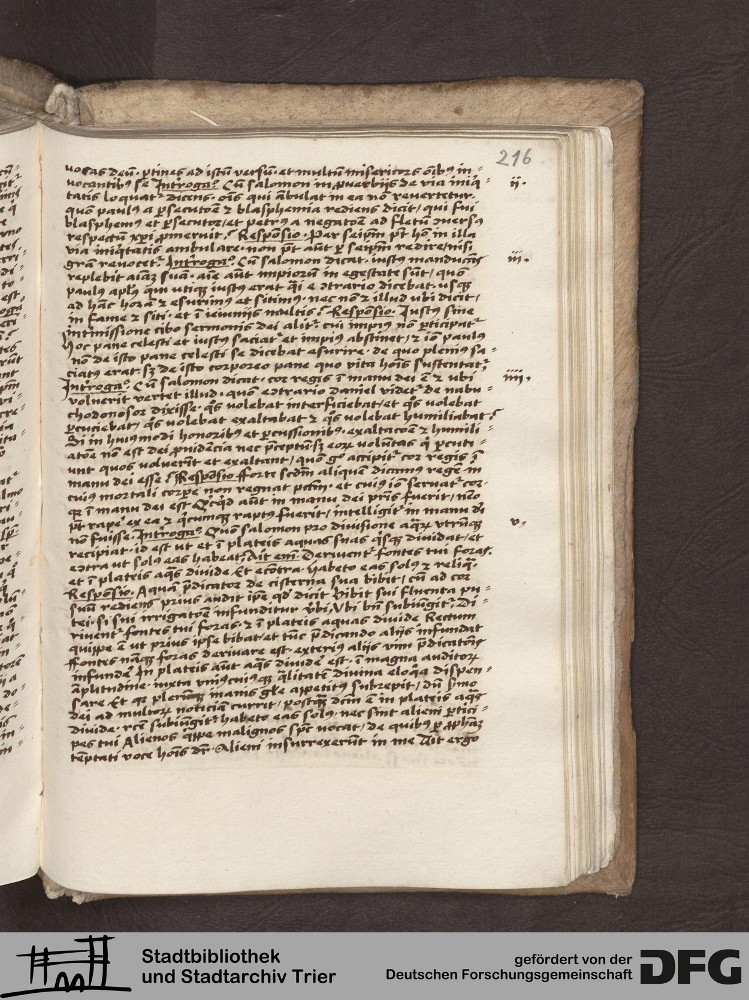 216
uocas deū · ptines ad istū versū · et multū misericors oībus in
vocantibus se Introga? Cū salomon in puerbijs de via iniq
tatis loquat dicens · oīs qui ābulat in ea nō reuertetur
ij.
quō paulus a psecutoē et blasphemia rediens dicit, qui fui
blasphemus et psecutor, et petrus a negatoē ad fletū
respectū xpi pmeruit? Responsio. Per seipm pt hō in illa
via iniqtatis ambulare · non pt aūt per seipm redire, nisi
gra reuocet. Introga? Cū salomon dicat, iustus manducās
iij.
replebit aiam suā · aīe aūt impiorū in egestate sūt, quō
paulus aplus qui utique iustus erat qi e dicebat · usque
ad hāc horā et esurimus et sitimus · nec nō et illud ubi dicit,
in fame et siti · et ī ieiunijs multis? Responsio. Iustus sine
intmissione cibo sermonis dei alit · cui impius nō pticipat
hoc pane celesti et iustus saciat et impius abstinet, et iō paulus
nō de isto pane celesti se dicebat esurire · de quo plenius sa
ciatus erat · sz de isto corporeo pane quo vita hoīs sustentat
Introga? Cū salomon dicat · cor regis ī manu dei ē et ubi
iiij.
voluerit vertet illud · quō econtrario daniel videt de nabu
chodonosor dixisse · qs volebat interficiebat, et qs volebat
pcuciebat, qs volebat exaltabat et qs volebat humiliabat?
Si in huiusmodi honoribus et pcussionibus, exaltacoē et humili
atoē nō est dei puidēcia nec pceptū sz eorum volūtas q pcuti
unt quos voluerīt et exaltant, quō g accipit cor regis ī
manu dei esse? Responsio fforte scdm aliquē dicamus regē in
cuius mortali corpe non regnat pctm · et cuius iō seruat cor
que ī manu dei est Qcqd aūt in manu dei pris fuerit, nēo
pt rape ex ea et qcumque raptus fuerit, intelligit in manu di
nō fuisse. Introga? Quō salomon pro diuisione aqarum vtrūque
v.
recipiat · id est ut et ī plateis aquas suas qsque diuidat, et
ecōtra ut solus eas habeat? Ait em · Deriuent fontes tui foras.
et ī plateis aqs diuide Et econtra · habeto eas solus et reliq.
Responsio. Aquā pdicator de cisterna sua bibit, cū ad cor
suū rediens prius audit ipse qd dicit bibit sui fluenta pu
tei · si sui irrigatoē infunditur Vbi bn subiungit. Di
riuent fontes tui foras · et ī plateis aquas diuide Rectum
quippe ē ut prius ipse bibat et tūc pdicando alijs infundat
ffontes nāque foras deriuare est · exterius alijs vim pdicatōis
infunde. In plateis aūt aqs diuide est · ī magna auditorum
āplitudine · iuxta uniuscuiusque qlitate diuina eloqa dispen
sare Et qr plerumque inanis gle appetitus subrepit, dū sermo
dei ad multorum noticiam currit, postqm dcm ē in plateis aqs
diuide · rcē subiūgit habeto eas solus, nec sint alieni ptici
pes tui Alienos qppe malignos spūs uocat, de quibus p pphaz
tēptati voce hoīs dr · Alieni insurrexerūt in me Ait ergo
Stadtbibliothek
und Stadtarchiv Trier
gefördert von der
Deutschen Forschungsgemeinschaft
DFG